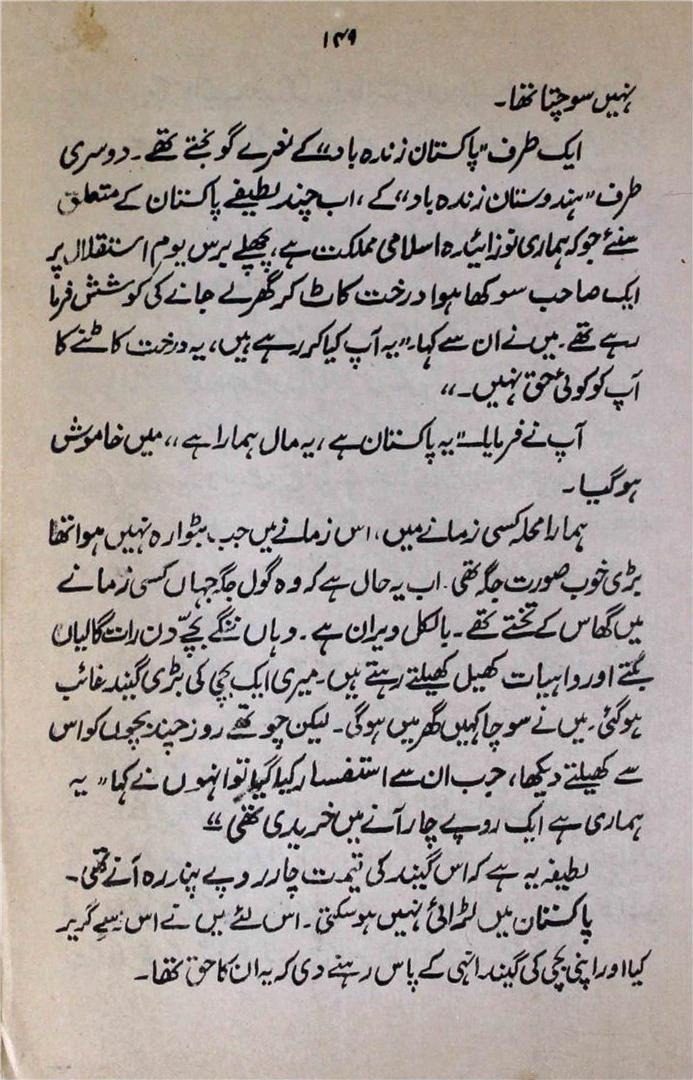 ۱۴۹
نہیں سوچتا تھا۔
ایک طرف "پاکستان زندہ باد" کے نعرے گونجتے تھے۔ دوسری
طرف "ہندوستان زندہ باد" کے، اب چند لطیفے پاکستان کے متعلق
سنئے جو کہ ہماری نوزائیدہ اسلامی مملکت ہے، پچھلے برس یوم استقلال پر
ایک صاحب سوکھا ہوا درخت کاٹ کر گھر لے جانے کی کوشش فرما
رہے تھے۔ میں نے ان سے کہا۔ "یہ آپ کیا کر رہے ہیں، یہ درخت کاٹنے کا
آپ کو کوئی حق نہیں۔"
آپ نے فرمایا۔ "یہ پاکستان ہے، یہ مال ہمارا ہے"، میں خاموش
ہو گیا۔
ہمارا محلہ کسی زمانے میں، اس زمانے میں جب بٹوارہ نہیں ہوا تھا
بڑی خوب صورت جگہ تھی۔ اب یہ حال ہے کہ وہ گول جگہ جہاں کسی زمانے
میں گھاس کے تختے تھے۔ بالکل ویران ہے۔ وہاں ننگے بچے دن رات گالیاں
بکتے اور واہیات کھیل کھیلتے رہتے ہیں۔ میری ایک بچی کی بڑی گیند غائب
ہو گئی۔ میں نے سوچا کہیں گھر میں ہو گی۔ لیکن چوتھے روز چند بچوں کو اس
سے کھیلتے دیکھا، جب ان سے استفسار کیا گیا تو انہوں نے کہا "یہ
ہماری ہے ایک روپے چار آنے میں خریدی تھی"
لطیفہ یہ ہے کہ اس گیند کی قیمت چار روپے پندرہ آنے تھی۔
پاکستان میں لڑائی نہیں ہو سکتی۔ اس لئے میں نے اس سے گریز
کیا اور اپنی بچی کی گیند انہی کے پاس رہنے دی کہ یہ ان کا حق تھا۔